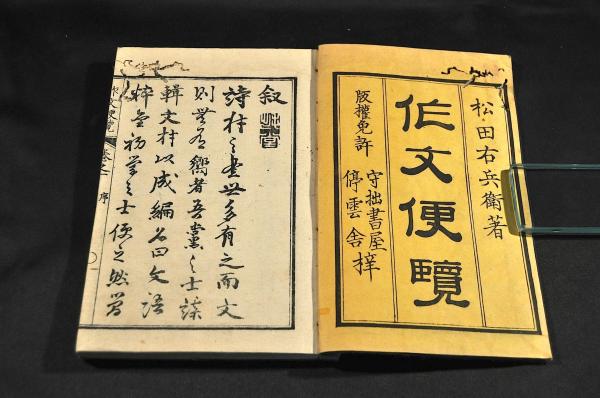 松田右兵衛著
作文便覽
版權免許
守拙書屋
停雲舎梓
叙
詩材之書世多有之而文
則無有嚮者吾黨之士謀
輯文材以成編名曰文語
粹初學之士便之然
作文便覽 卷之一 序